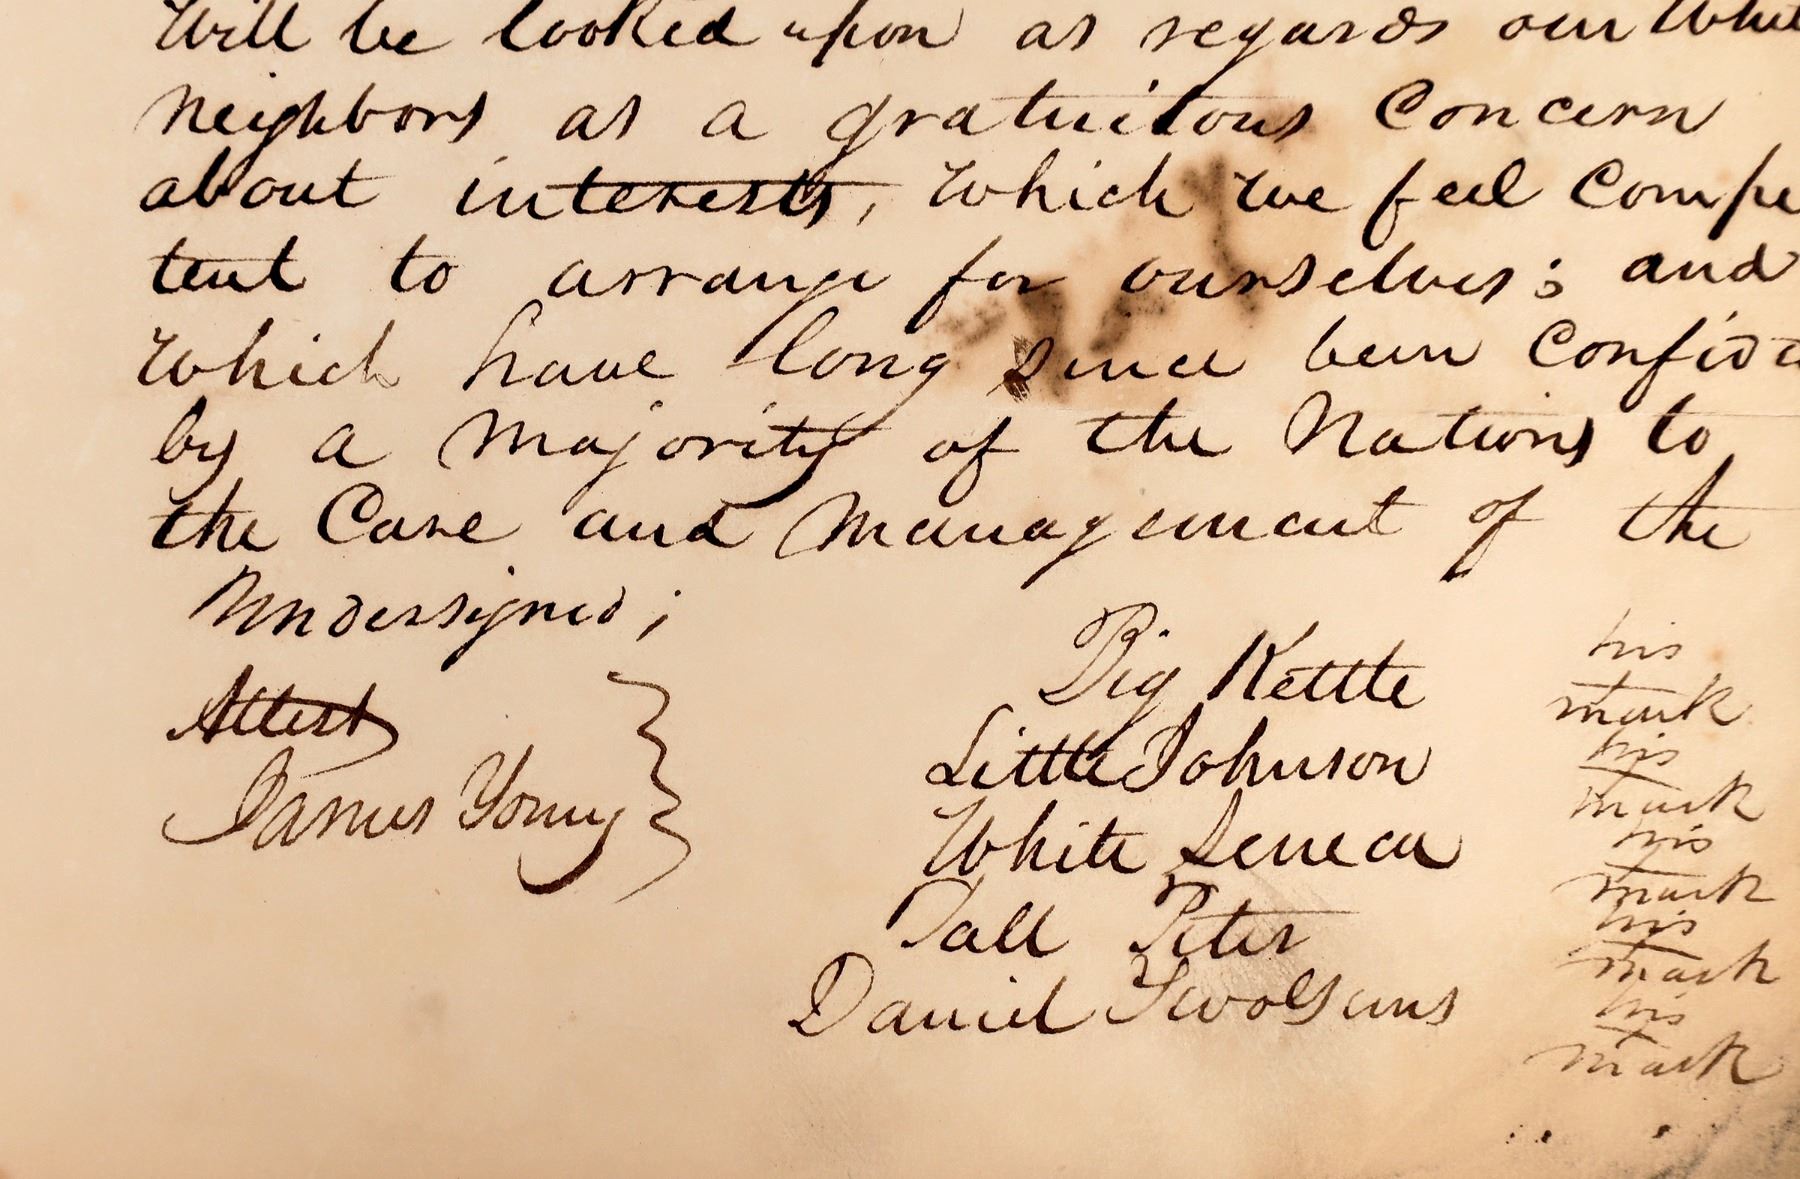 Will be looked upon as regards our Whit
Neighbors as a gratuitous Concern
about interests, Which we feel Compe
tent to arrange for ourselves; and
Which have long since been Confid
by a Majority of the Nations to
the Care and Management of the
Undersigned;
Attest
James Young
Big Kettle his mark
Little Johnson his mark
White Seneca his mark
Tall Peter his mark
Daniel Twoguns his mark